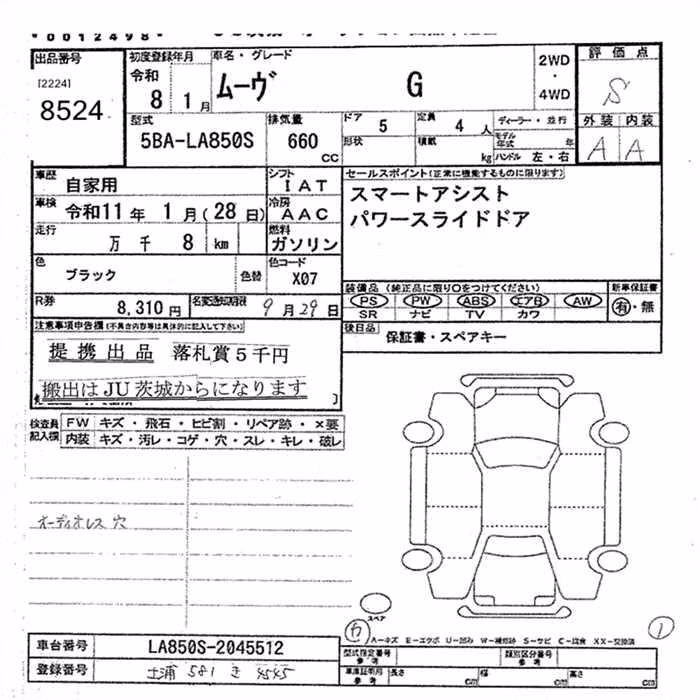 *00012498*
出品番号
[2224]
8524
初度登録年月
令和
8 1月
車名・グレード
ムーヴ G
2WD
・
4WD
評価点
S
外装 内装
A A
型式
5BA-LA850S
排気量
660
CC
ドア
5
定員
4 人
形状
積載
kg
ディーラー・並行
モデル年式 年
ハンドル 左・右
車歴
自家用
シフト
IAT
車検
令和11年 1月(28日)
冷房
AAC
走行
万 千 8 km
燃料
ガソリン
色
ブラック
色替
色コード
X07
R券
8,310円
名変通知期限
9月29日
セールスポイント(正常に機能するものに限ります)
スマートアシスト
パワースライドドア
装備品(純正品に限り○をつけてください)
PS PW ABS エアB AW
SR ナビ TV カワ
新車保証書
有・無
後日品
保証書・スペアキー
注意事項申告欄(不具合内容等は具体的に記入して下さい)
提携出品 落札賞5千円
搬出はJU茨城からになります
検査員記入欄
FW キズ・飛石・ヒビ割・リペア跡・×要
内装 キズ・汚レ・コゲ・穴・スレ・キレ・破レ
オーディオレス穴
スペア
A-キズ E-エクボ U-凹み W-補修跡 S-サビ C-腐食 XX-交換済
1
車台番号
LA850S-2045512
登録番号
土浦 581 き 4545
型式指定番号
参考
類別区分番号
参考
車庫証明用
参考
長さ cm
幅 cm
高さ cm